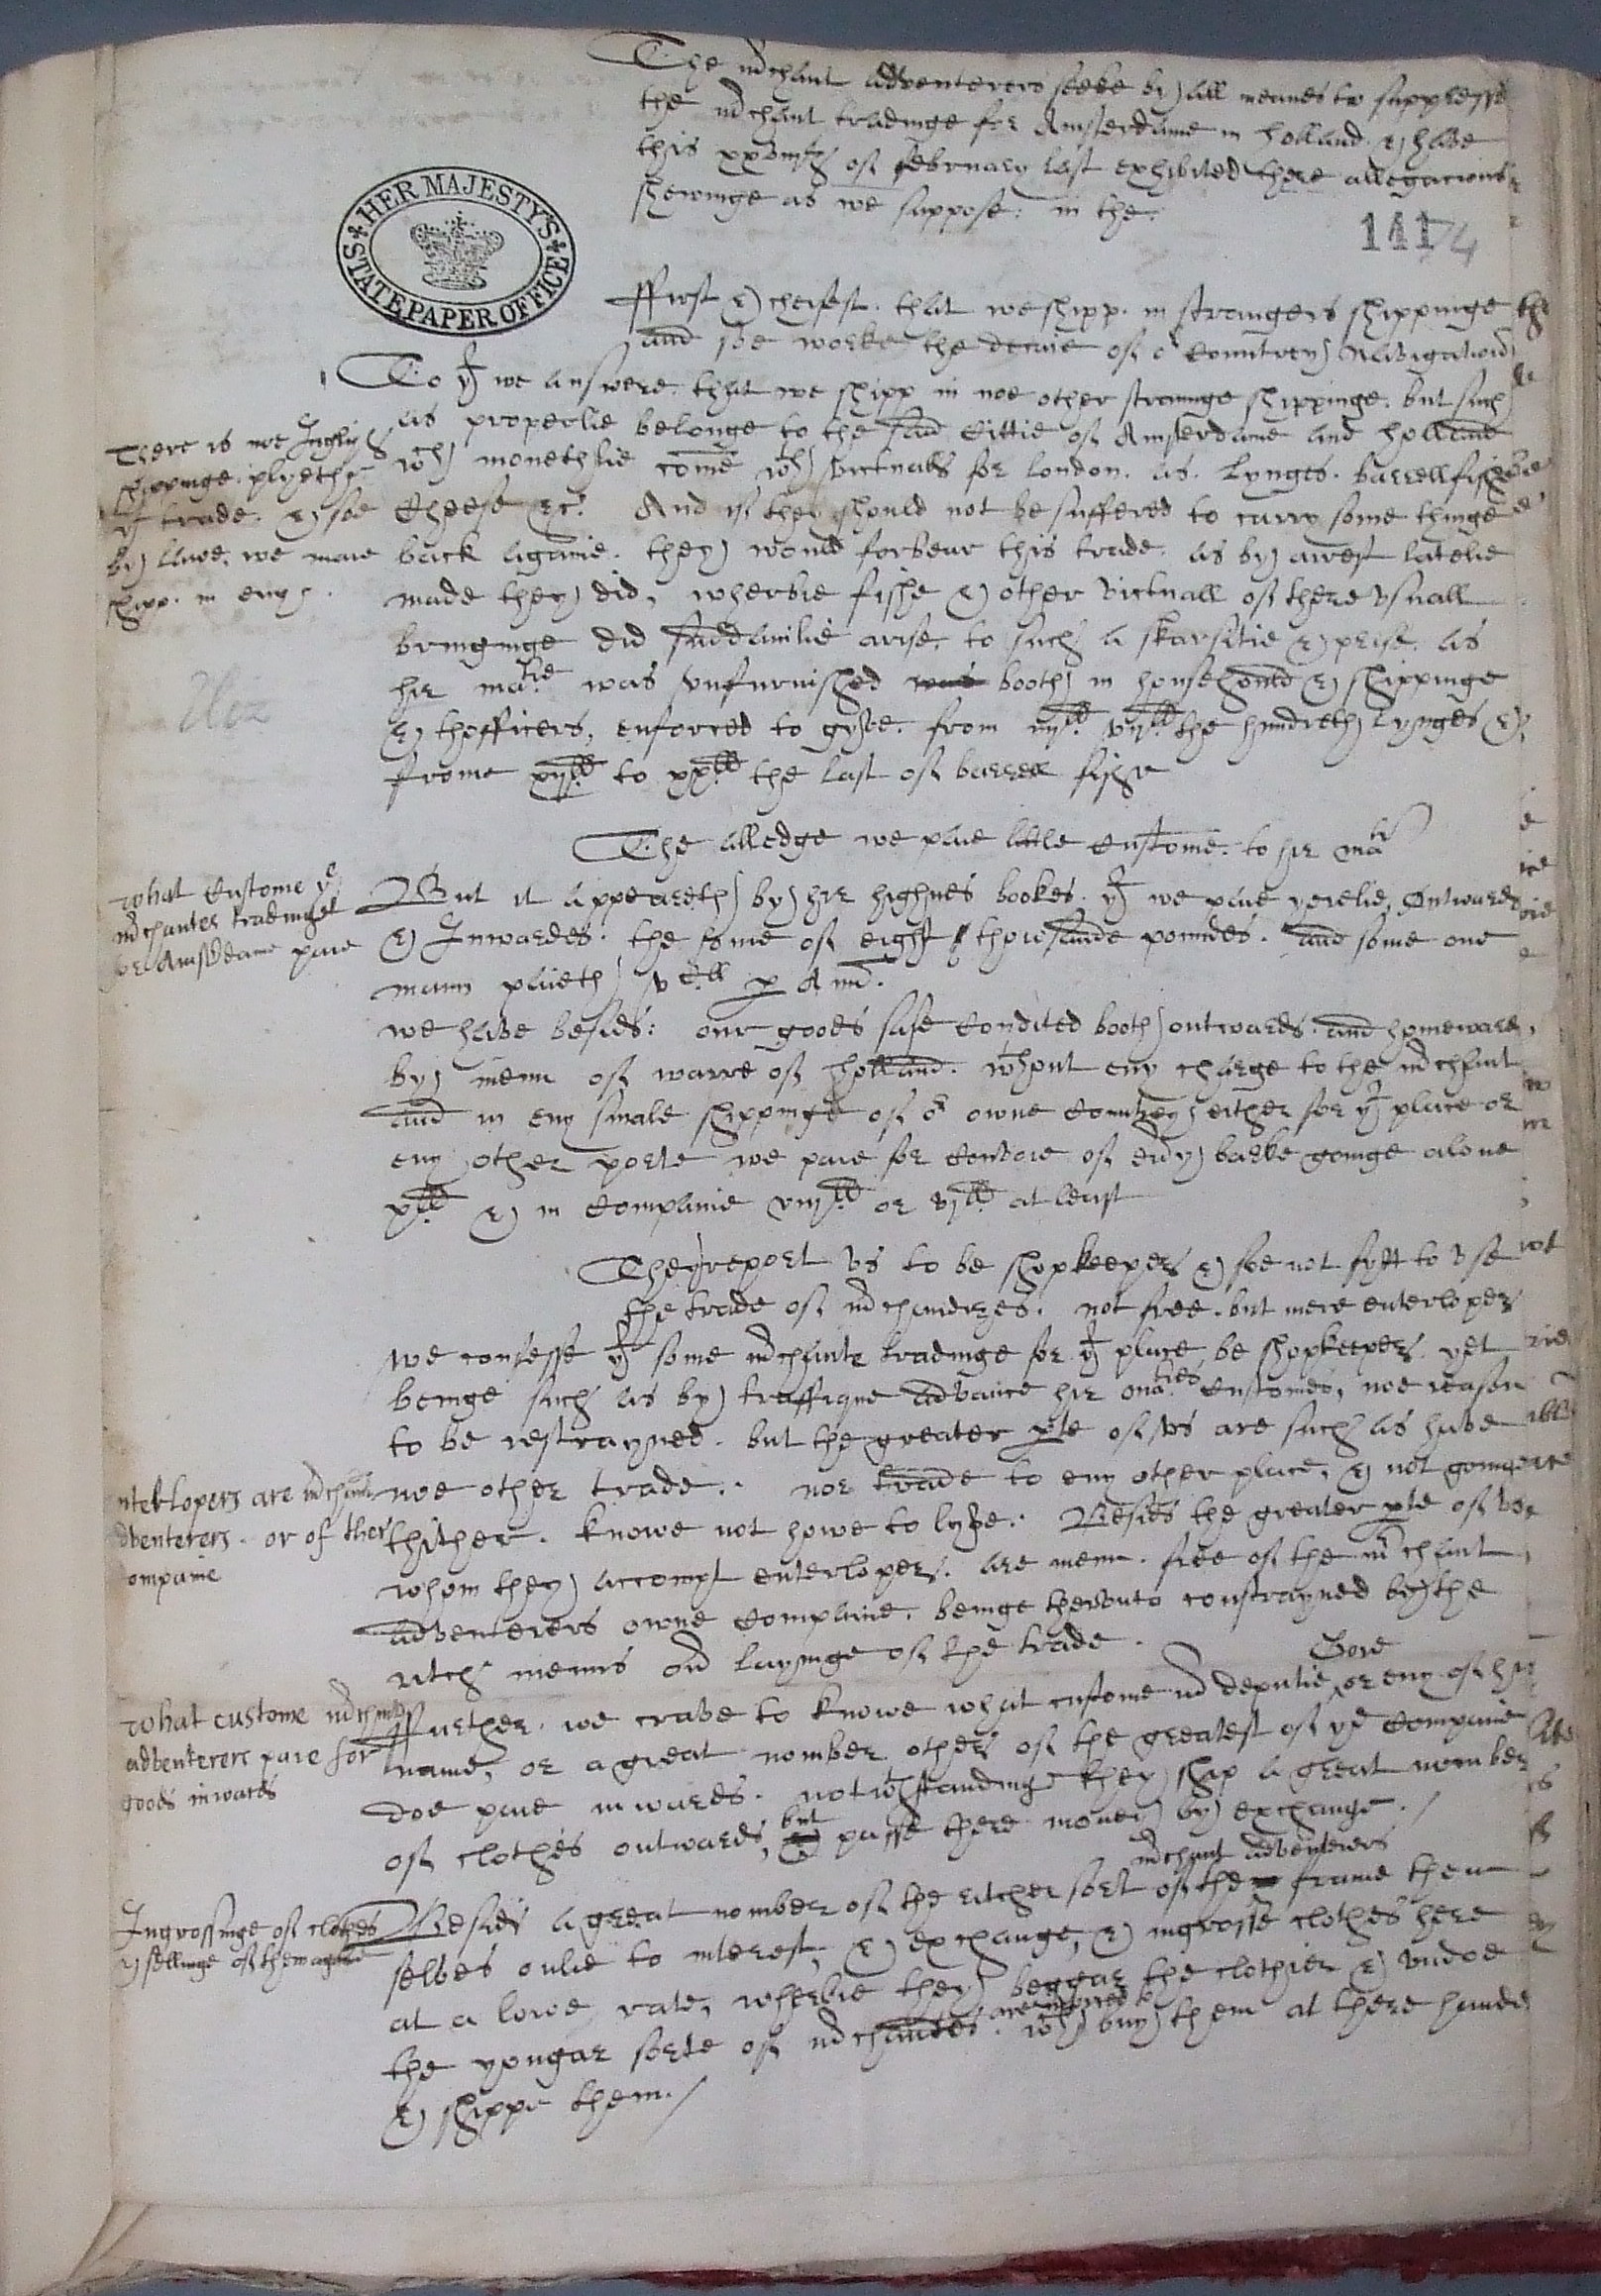 The mrchant adventerers seeke by all meanes to suppresse
the mrchant tradinge for Amsterdame in holland & have
this xxviijth of february last exhibited there allegacions
shewinge as we suppose: in the.
HER MAJESTY'S STATE PAPER OFFICE
141
74
ffirst & cheifest. that we shipp. in straungers shippinge
and soe worke the decaie of or Countrey Navigation
To yt we answere. that we shipp in noe other straunge shippinge. but such
as properlie belonge to the said Cittie of Amsterdame and holland
wch monethlie come wth victualls for london. as. Lynges. barrell fishe
Cheese &c. And if they should not be suffered to carry some thinge
back againe. they would forbear this trade. as by arrest latelie
made they did, wherbie fishe & other victuall of there vsuall
bringinge did suddainlie arise. to such a skarsitie & prise. as
hir matie was vnfurnished was booth in househould & shippinge
& thofficers, enforced to gyve. from iijli vijli the hundreth Lynges &
frome xijli to xxli the last of barrell fishe
There is noe Inglysh
shippinge. plyeth
yt trade. & soe
by lawe. we maie
shipp. in eny
The alledge we paie little Custome. to hir matie
what Custome ye
mrchantes tradinge
for Amsterdame paie
But it appeareth by hir highnes bookes. yt we paie yerelie, Outwardes
& Inwardes. the some of eight thowsande poundes. and some one
mann paieth vCll p Annu.
we have besids: our goods safe Condited booth outwards. and homeward,
by menn of warre of holland. wthout eny charge to the mrchaunt
and in eny smale shippinge of or owne Countrey either for yt place or
eny other porte we paie for Convoie of every barke goinge alone
xli & in Companie viijli or vjli at least
They report vs to be shopkeepers & soe not fytt to vse
the trade of mrchandizes. not free. but mere enterlopers
we confesse yt some mrchants tradinge for yt place be shopkeepers. yet
beinge such as by traffique advance hir maties Customes, noe reason
to be restrayned. but the greater pte of vs are such as have
noe other trade. nor trade to eny other place, & not goinge
thither. knowe not howe to lyve. Besids the greater pte of vs
whom they accompt enterlopers. are menn. free of the mrchaunt
adventerers owne Companie. beinge thervnto constrayned by the
ritch menns over layinge of the trade.
nterlopers are mrchant
dventerers. or of ther
ompanie
what custome mrchaunt
adventerers paie for
goods inwards
ffurther. we crave to knowe what custome mr deputie Gore or eny of his
name, or a great nomber others of the greatest of ye Companie
doe paie inwards. notwthstandinge they ship a great nomber
of clothes outwards, but passe there money by exchange.
Ingrossinge of clothes
& sellinge of them againe
Besids a great nomber of the ritcher sort of the mrchant adventerers frame them
selves onlie to interest, & exchange, & ingrosse clothes here
at a lowe rate, wherbie they beggar the clothier & vndoe
the yongar sorte of mrchantes. wch are inforced to buy them at there hands
& shippe them.